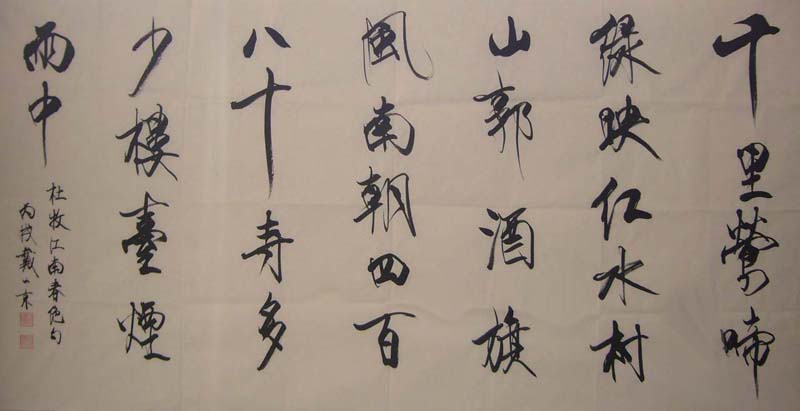 千里鶯啼
绿映红水村
山郭酒旗
風南朝四百
八十寺多
少樓臺煙
雨中
杜牧江南春绝句
丙戌戴